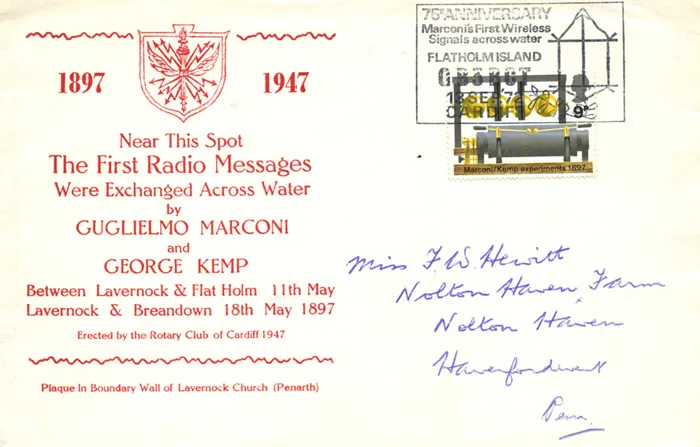 1897 1947
Near This Spot
The First Radio Messages
Were Exchanged Across Water
by
GUGLIELMO MARCONI
and
GEORGE KEMP
Between Lavernock & Flat Holm 11th May
Lavernock & Breandown 18th May 1897
Erected by the Rotary Club of Cardiff 1947
Plaque In Boundary Wall of Lavernock Church (Penarth)
75th ANNIVERSARY
Marconi's First Wireless
Signals across water
FLATHOLM ISLAND
GB3BCT
CARDIFF
9P
Marconi/Kemp experiments 1897
Miss F. W. Hewitt
Nolton Haven Farm
Nolton Haven
Haverfordwest
Pem.